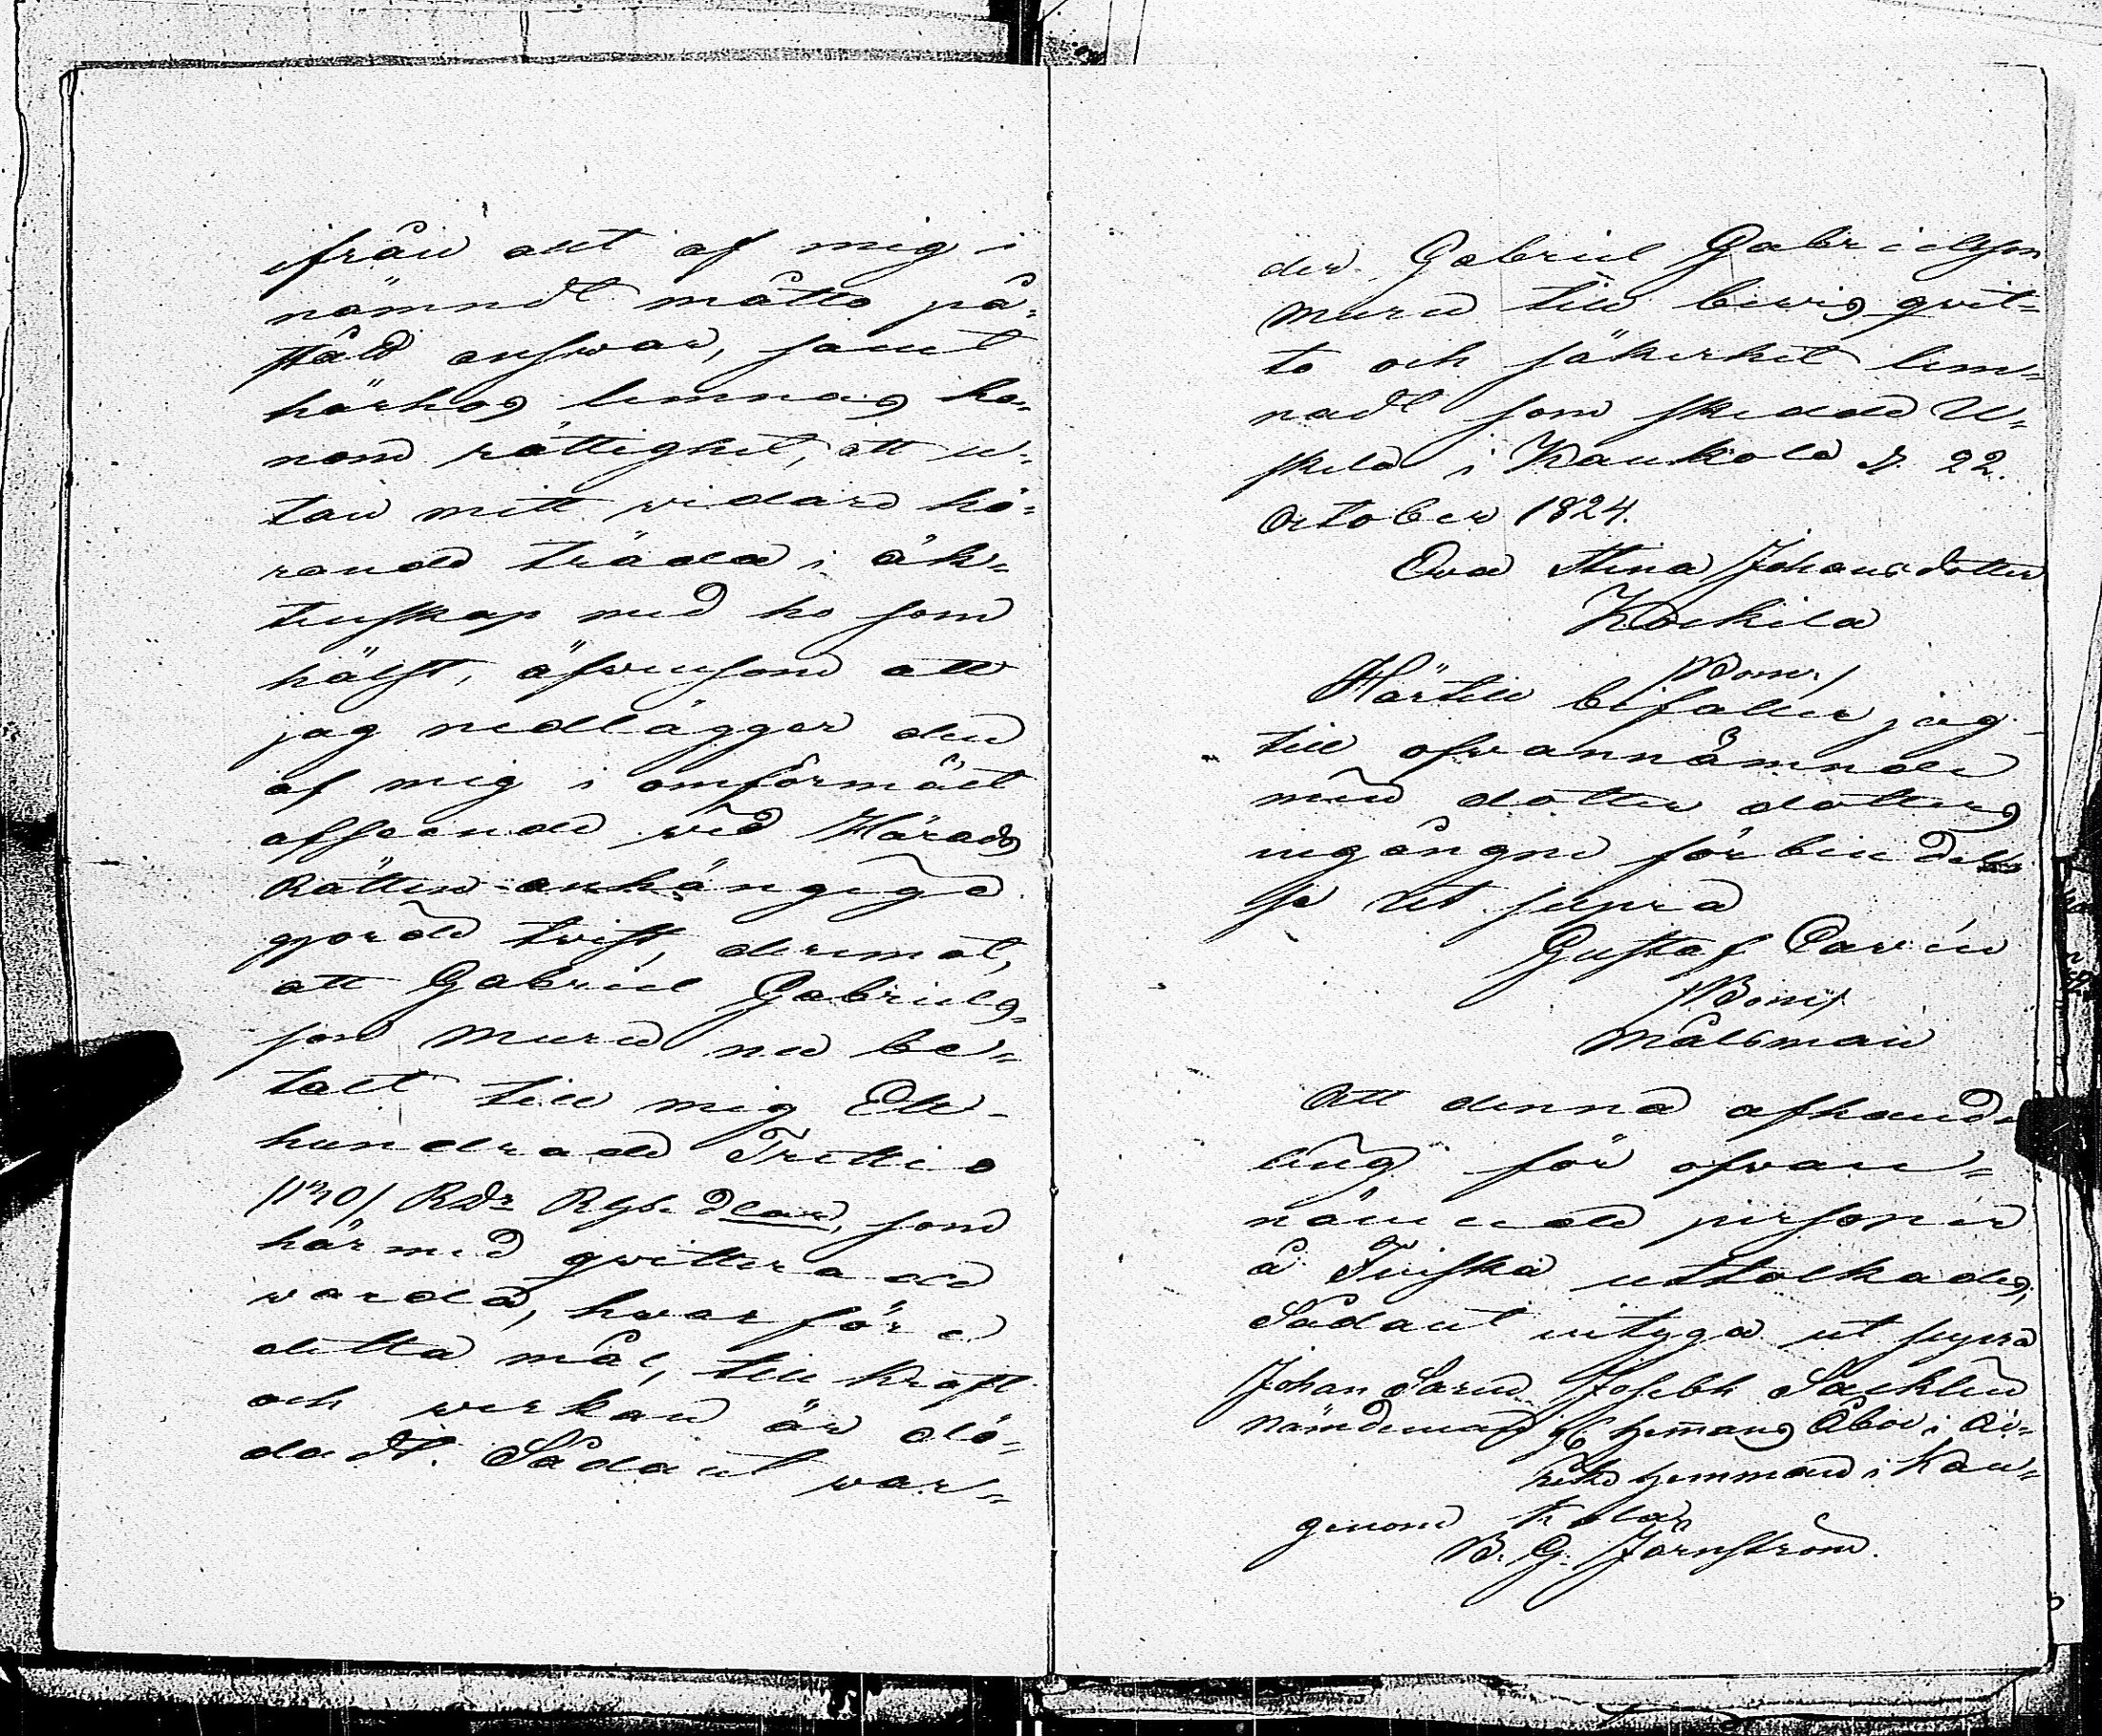 ifrån allt af mig i
nämndt måtto på=
stådt answar, samt
härhos lemnas ho=
nom rättighet, att u=
tan mitt widare hö=
rande träda i äk=
tenskap med ho som
hälst, äfvensom att
jag nedlägger den
af mig i omförmält
afseende wid Härads
Rätten anhängige
gjorde twist, deremot,
att Gabriel Gabriels=
son Muru nu be=
talt till mig Ett
hundrade Trettio
/130/ Rdr Rgs. dlar, som
härmed qvitterade
warda, hwarföre
detta mål, till kraft
och werkan är dö=
dadt. Sådant war=
der Gabriel Gabrielsson
Muru till bewis, qvit=
to och säkerhet lem=
nadt som skedde U=
skela i Kaukola d. 22.
October 1824.
Eva Stina Johansdotter
Kockila
/Bom./
Härtill bifaller jag
till ofvannämnde
min dotter dotters
ingångne förbindel=
se Ut supra
Gustaf
/Bom./
Målsman
Att denna afhand=
ling för ofvan=
nämnde personer
å Finska uttolkades,
Sådant intyga ut supra
Johan Joseph
Nämdeman hemmans Åboe i
hemman i Kau=
genom kola
B. G. Järnström.